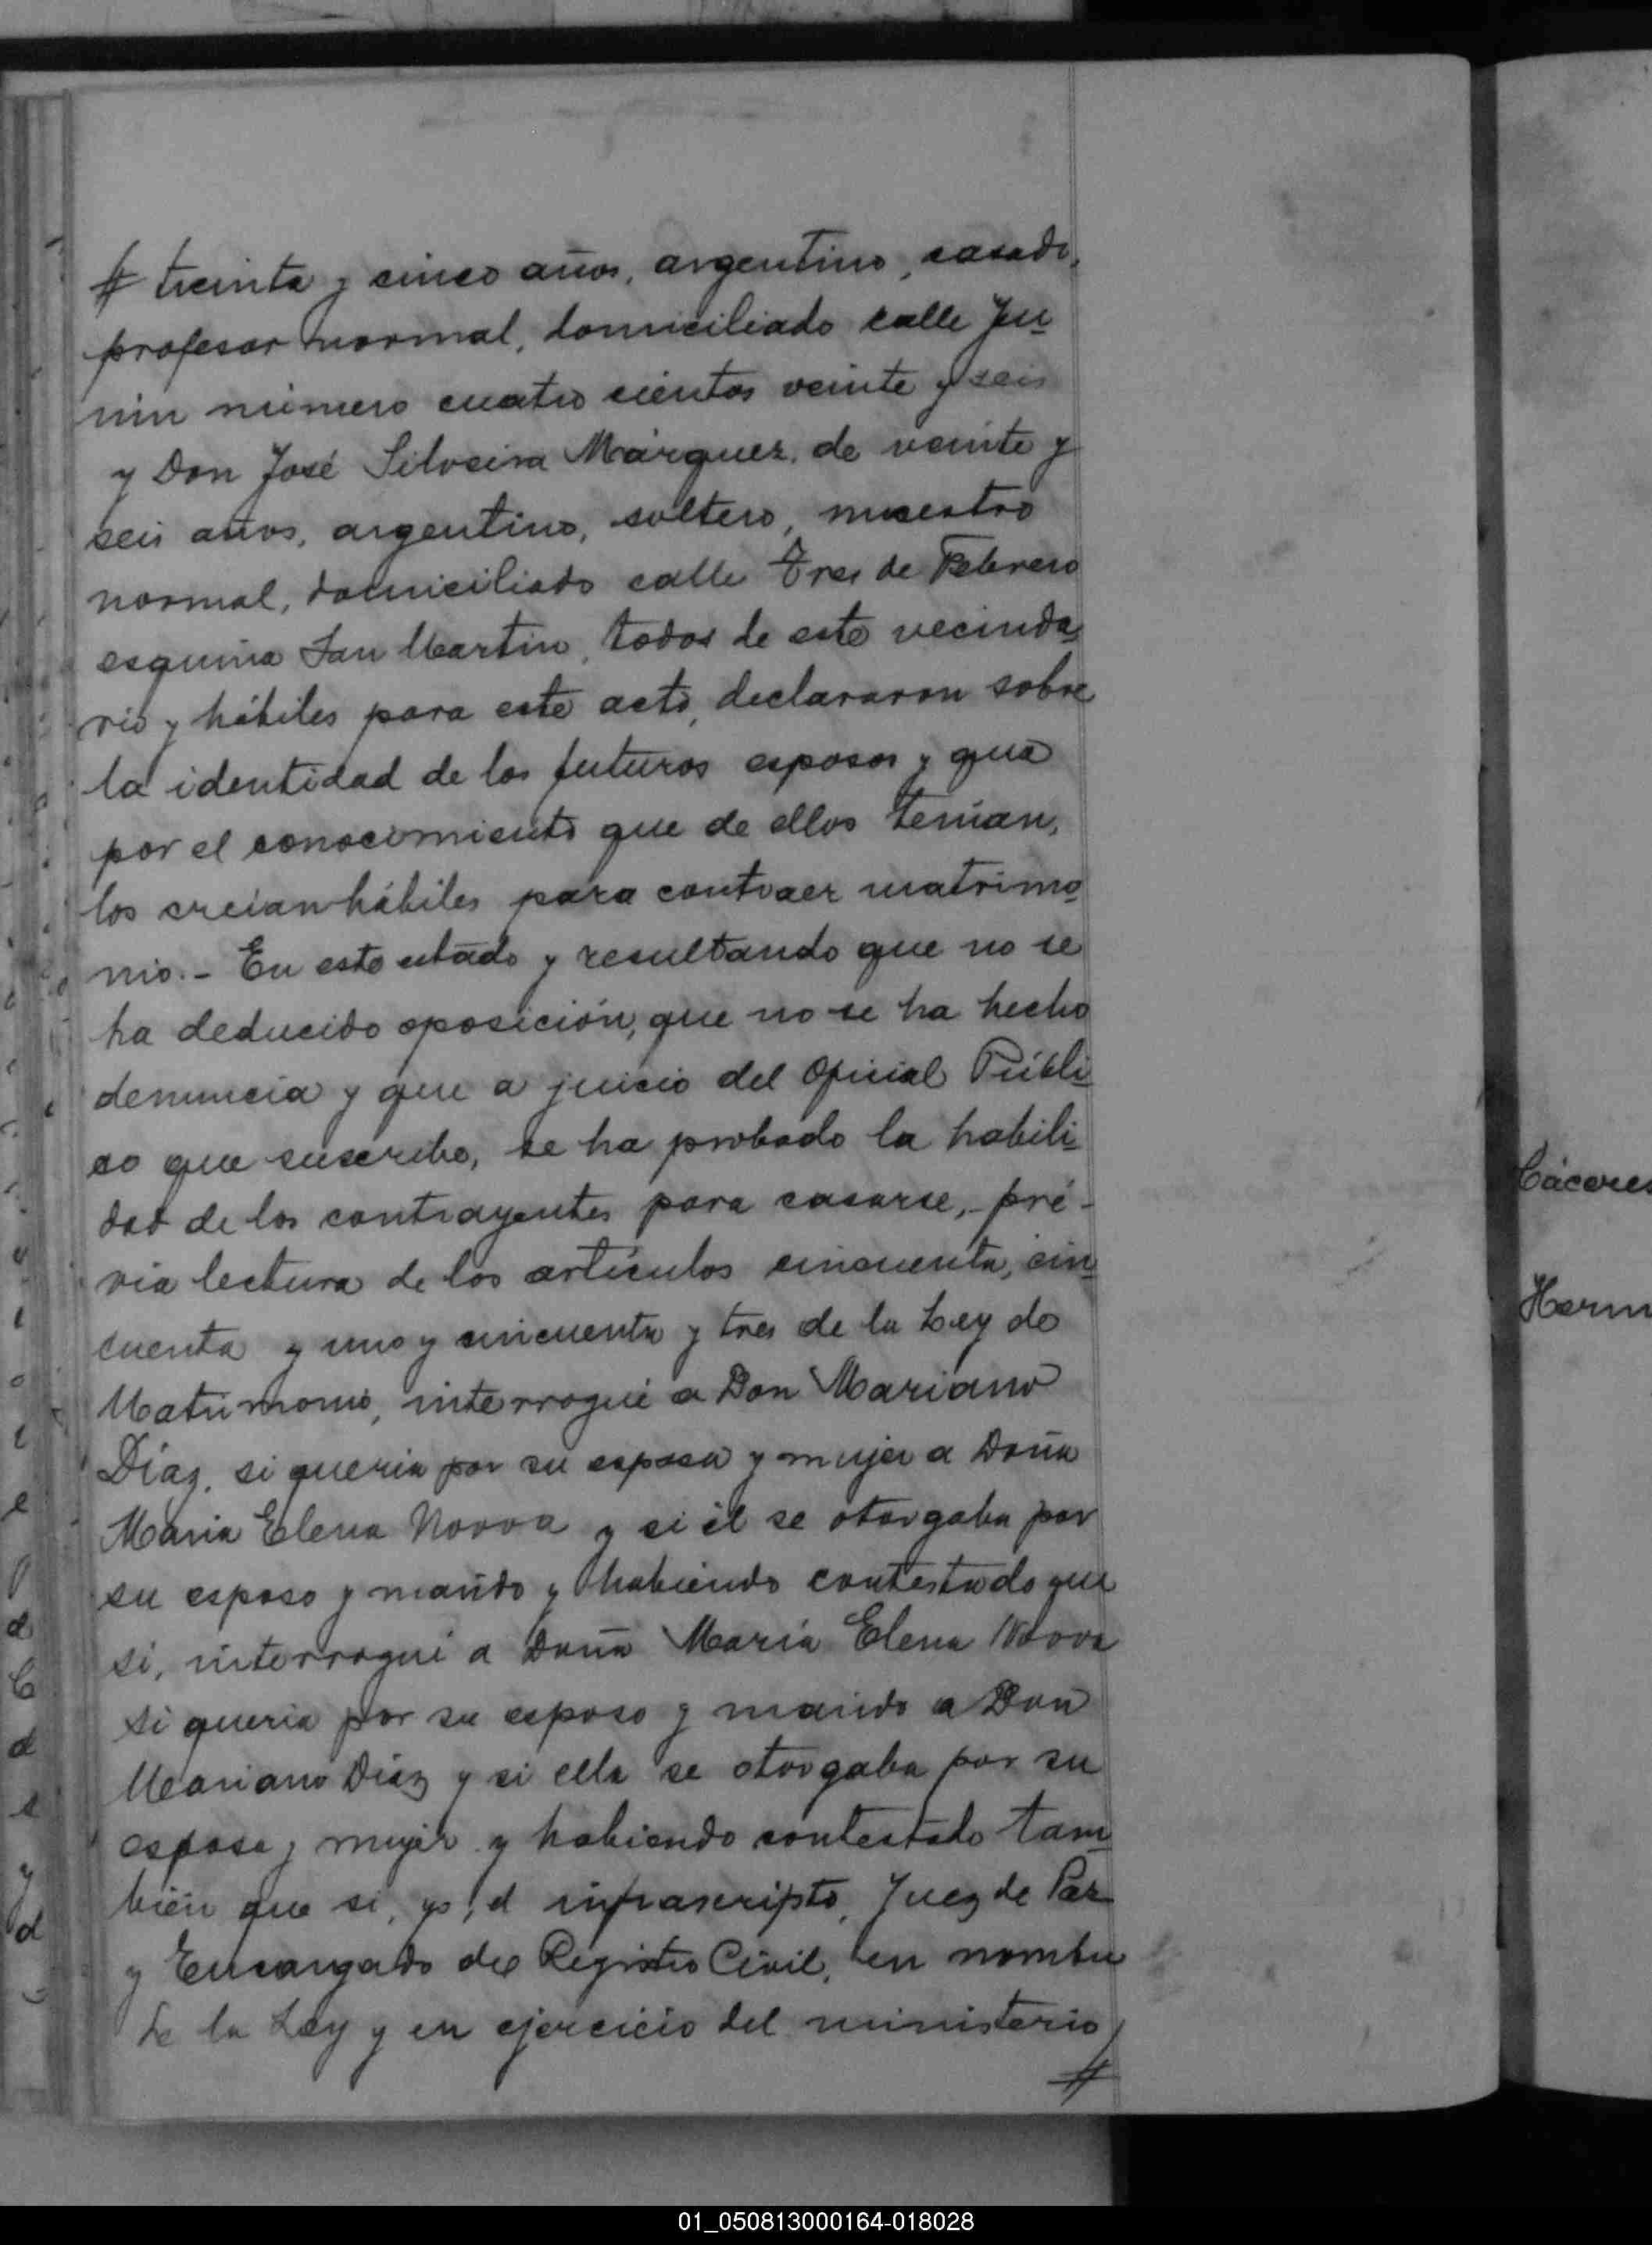 # treinta y cinco años, argentino, casado,
profesor normal, domiciliado calle Ju
nin número cuatro cientos veinte y seis
y Don José Silveira Márquez, de veinte y
seis años, argentino, soltero, maestro
normal, domiciliado calle Tres de Febrero
esquina San Martin, todos de este vecinda
rio y hábiles para este acto, declararon sobre
la identidad de los futuros esposos y que
por el conocimiento que de ellos tenían,
los creían hábiles para contraer matrimo
nio.- En este estado y resultando que no se
ha deducido oposición, que no se ha hecho
denuncia y que a juicio del Oficial Públi
co que suscribe, se ha probado la habili
dad de los contrayentes para casarse, pré-
via lectura de los artículos cincuenta, cin
cuenta y uno y cincuenta y tres de la Ley de
Matrimonio, interrogué a Don Mariano
Díaz, si queria por su esposa y mujer a Doña
Maria Elena Novoa y si él se otorgaba por
su esposo y marido y habiendo contestado que
si, interrogué a Doña María Elena Novoa
si queria por su esposo y marido a Don
Mariano Díaz y si ella se otorgaba por su
esposa y mujer y habiendo contestado tam
bién que si, yo, el infrascripto, Juez de Paz
y Encargado del Registro Civil, en nombre
de la Ley y en ejercicio del ministerio
#
Cáceres
Herm
01_050813000164-018028